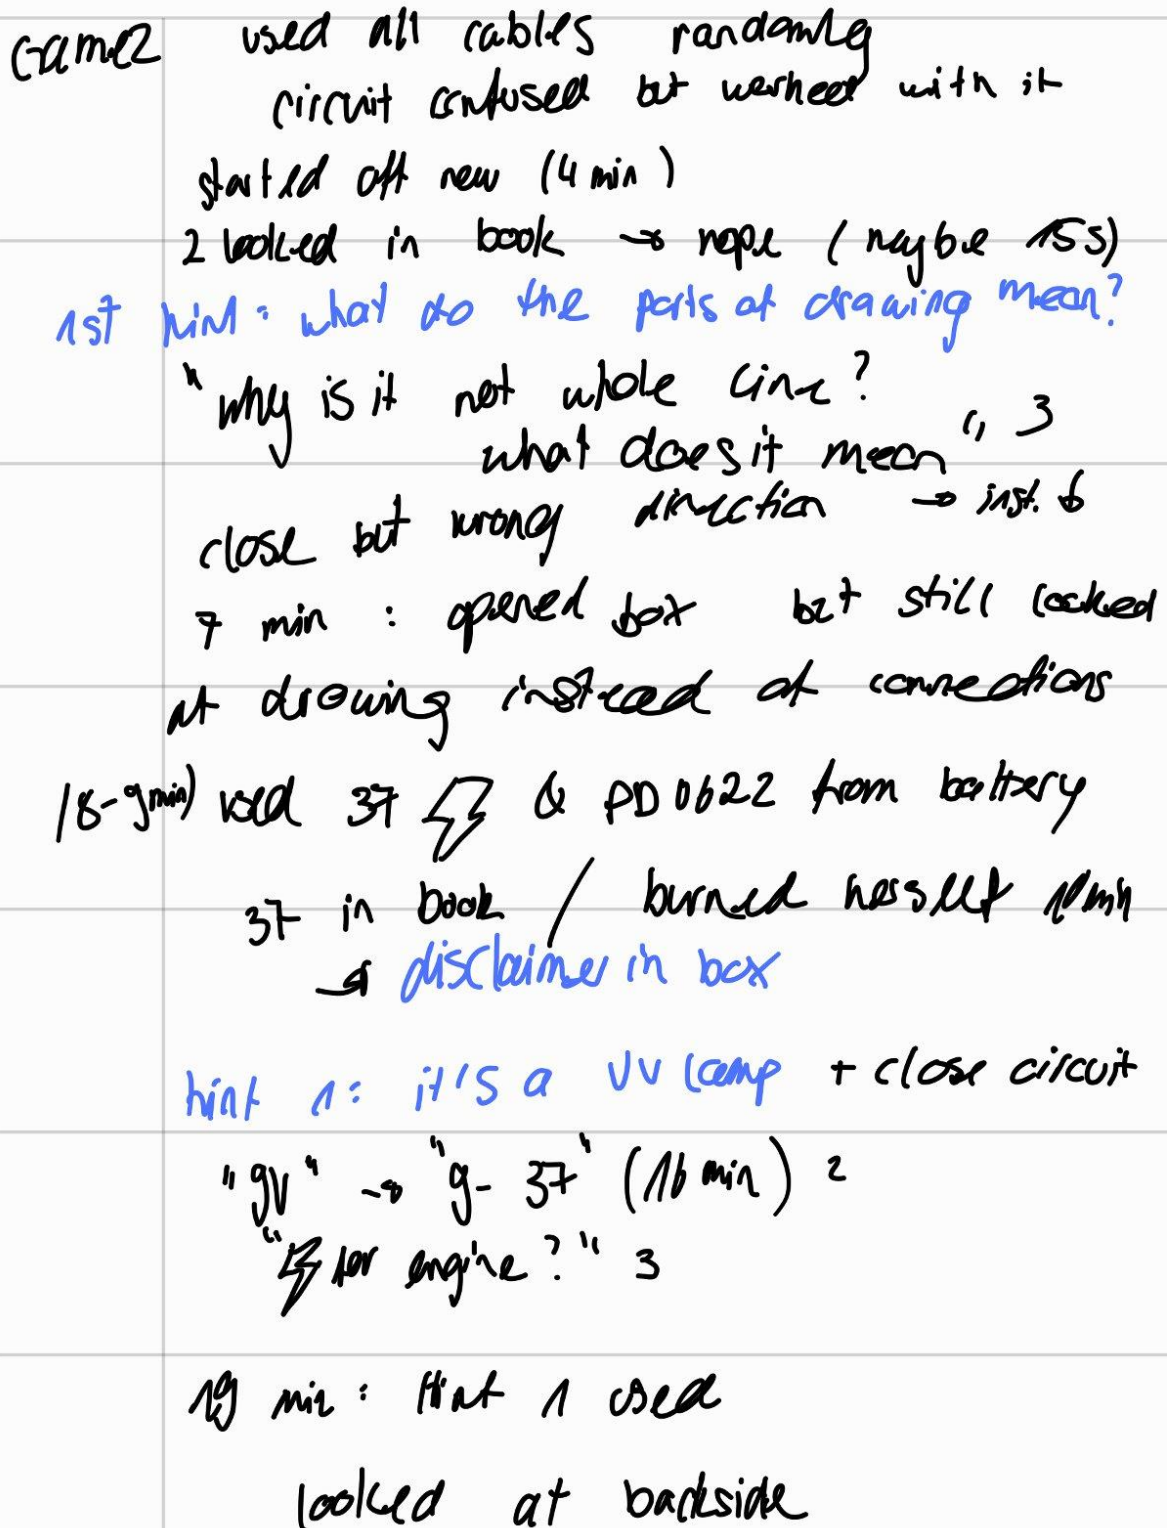 Game2 used all cables randomly
circuit confused but worked with it
started off new (4 min)
2 looked in book → nope (maybe 15s)
1st hint: what do the parts of drawing mean?
"why is it not whole line?
what does it mean", 3
close but wrong direction → inst. 6
7 min : opened box but still looked
at drawing instead of connections
(8-9min) used 37 ⚡ & PD0622 from battery
37 in book / burned herself 10min
→ disclaimer in box
hint 1: it's a UV lamp + close circuit
"9V" → "9-37" (16 min) 2
"⚡ for engine?" 3
19 min: Hint 1 used
looked at backside